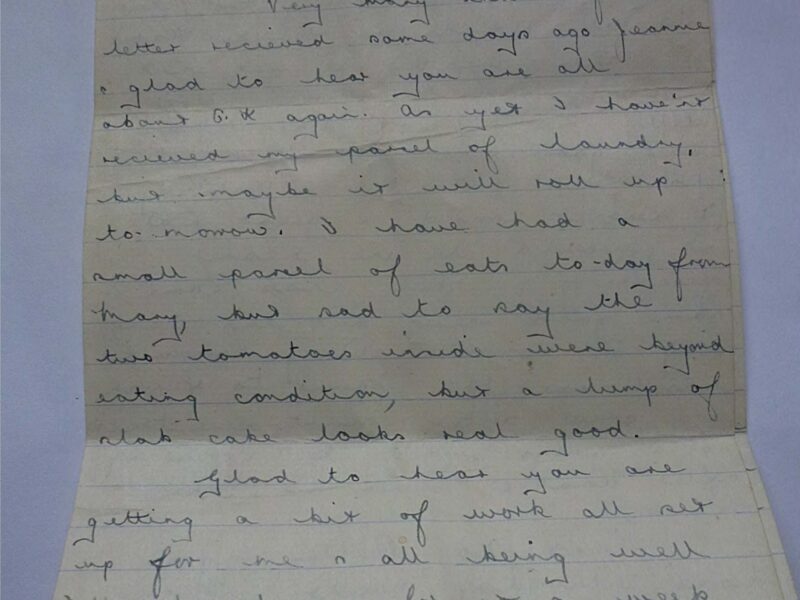 Very many
letter recieved some days ago Jeanne
& glad to hear you are all
about O.K again. As yet I have'nt
recieved my parcel of laundry,
but maybe it will roll up
to-morrow. I have had a
small parcel of eats to-day from
Mary, but sad to say the
two tomatoes inside were beyond
eating condition, but a lump of
slab cake looks real good.
Glad to hear you are
getting a bit of work all set
up for me & all being well
week